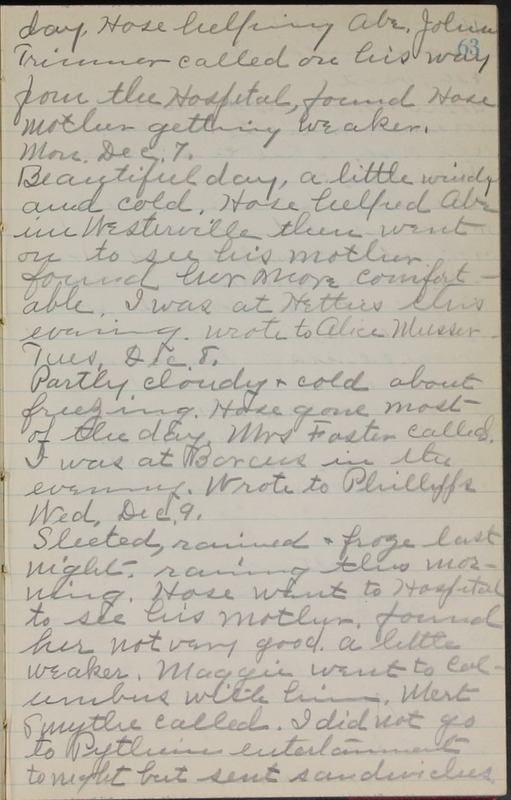 day. Hose helping Abe. John
63
Trimmer called on his way
from the Hospital, found Hose
mother getting weaker.
Mon. Dec. 7.
Beautiful day, a little windy
and cold. Hose helped Abe
in Westerville then went
on to see his mother
found her more comfort-
able. I was at Hetties this
evening. wrote to Alice Musser.
Tues. Dec. 8.
Partly cloudy + cold about
freezing. Hose gone most
of the day. Mrs Foster called.
I was at Borcus in the
evening. Wrote to Phillipps
Wed, Dec, 9.
Sleeted, rained + froze last
night. raining this mor-
ning. Hose went to Hospital
to see his mother. found
her not very good. a little
weaker. Maggie went to Col-
umbus with him. Mert
Smythe called. I did not go
to Pythian entertainment
tonight but sent sandwiches